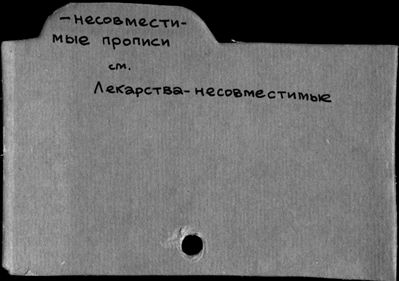 -несовмести-
мые прописи
см.
Лекарства-несовместимые